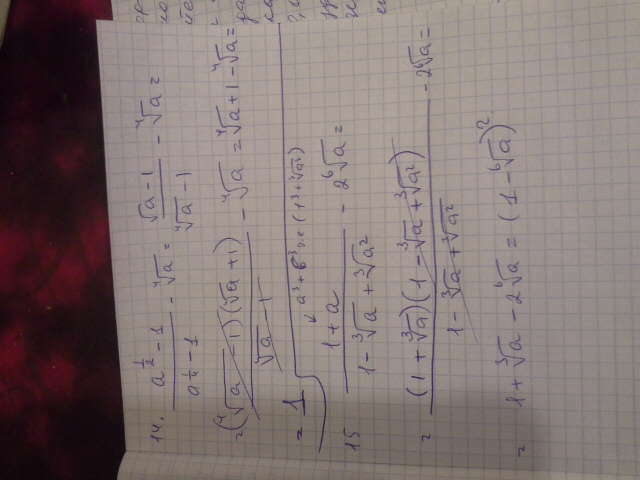 14. (a^{1/2} - 1)/(a^{1/4} - 1) - ⁴√a = (√a - 1)/(⁴√a - 1) - ⁴√a =
= (⁴√a - 1)(⁴√a + 1)/(⁴√a - 1) - ⁴√a = ⁴√a + 1 - ⁴√a =
= 1
a³ + b³ т.е (1³ + ³√a³)
15 (1 + a)/(1 - ³√a + ³√a²) - 2⁶√a =
= (1 + ³√a)(1 - ³√a + ³√a²)/(1 - ³√a + ³√a²) - 2⁶√a =
= 1 + ³√a - 2⁶√a = (1 - ⁶√a)²